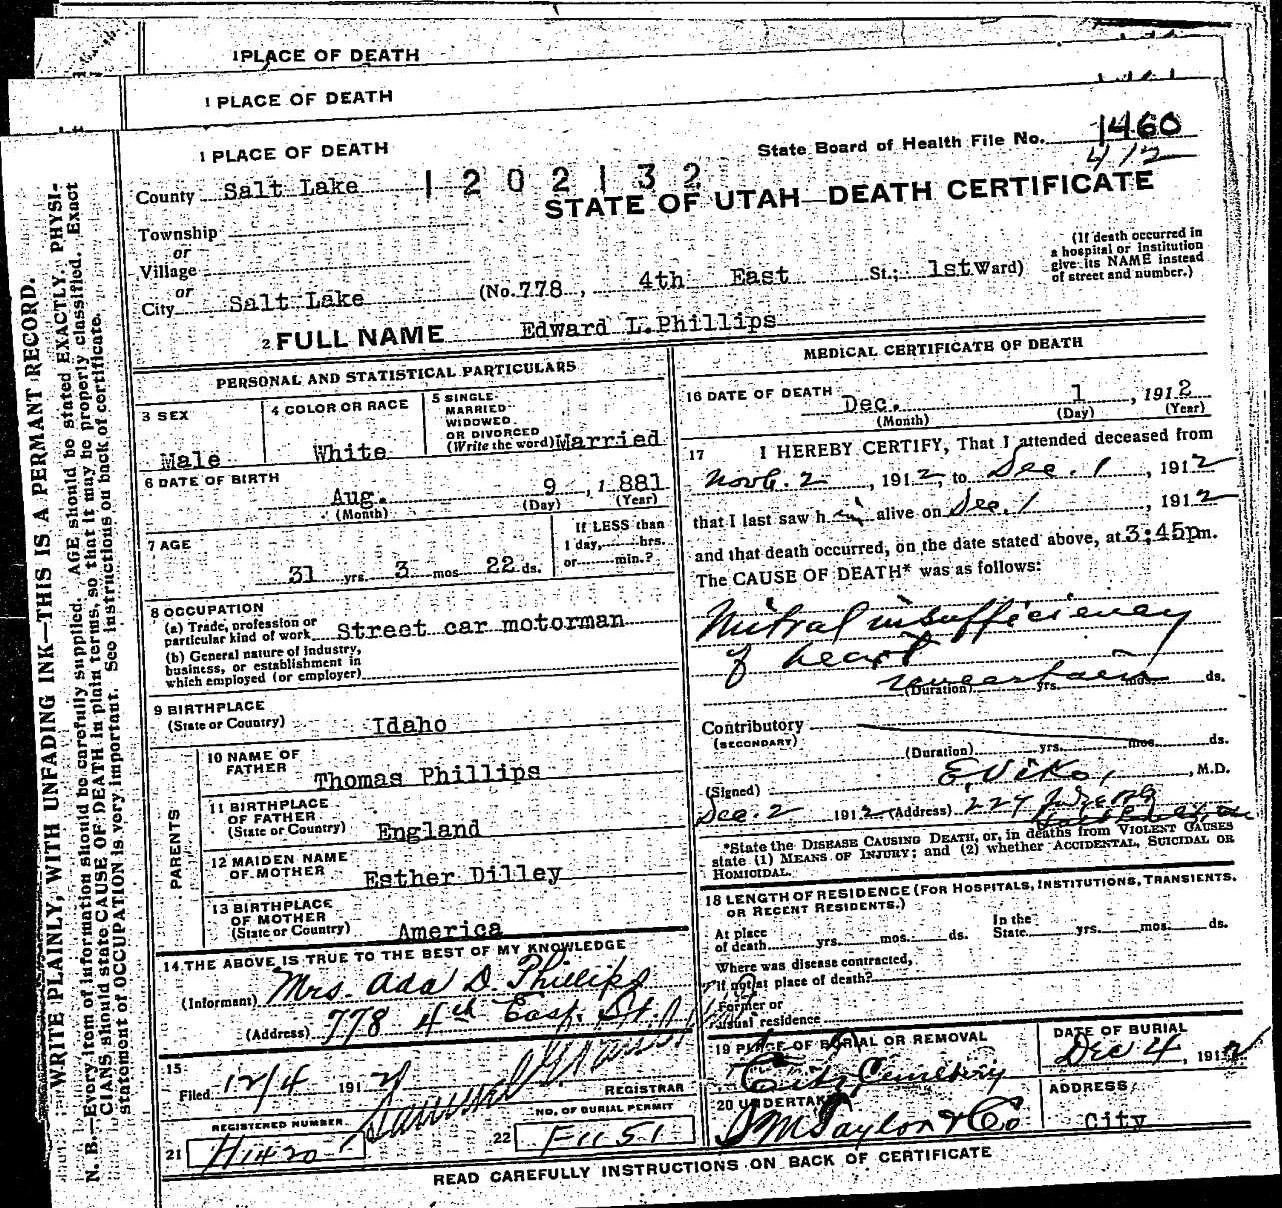 1 PLACE OF DEATH
1 PLACE OF DEATH
1 PLACE OF DEATH
State Board of Health File No. 1460
412
County Salt Lake 1202132
STATE OF UTAH—DEATH CERTIFICATE
Township
or
Village
or
City Salt Lake (No. 778, 4th East St.; 1st Ward)
(If death occurred in
a hospital or institution
give its NAME instead
of street and number.)
2 FULL NAME Edward L.Phillips
PERSONAL AND STATISTICAL PARTICULARS
3 SEX
Male
4 COLOR OR RACE
White
5 SINGLE
MARRIED
WIDOWED
OR DIVORCED
(Write the word) Married
6 DATE OF BIRTH
Aug. 9, 1881
(Month) (Day) (Year)
7 AGE
31 yrs. 3 mos. 22 ds.
If LESS than
1 day, hrs.
or min.?
8 OCCUPATION
(a) Trade, profession or
particular kind of work Street car motorman
(b) General nature of Industry,
business, or establishment in
which employed (or employer)
9 BIRTHPLACE
(State or Country) Idaho
PARENTS
10 NAME OF
FATHER Thomas Phillips
11 BIRTHPLACE
OF FATHER
(State or Country) England
12 MAIDEN NAME
OF MOTHER Esther Dilley
13 BIRTHPLACE
OF MOTHER
(State or Country) America
14 THE ABOVE IS TRUE TO THE BEST OF MY KNOWLEDGE
(Informant) Mrs. Ada D. Phillips
(Address) 778 4th East. St.
15
Filed 12/4 1912
REGISTRAR
REGISTERED NUMBER
21 H1420
NO. OF BURIAL PERMIT
22 F1151
MEDICAL CERTIFICATE OF DEATH
16 DATE OF DEATH
Dec. 1, 1912
(Month) (Day) (Year)
17 I HEREBY CERTIFY, That I attended deceased from
2, 1912, to Dec. 1, 1912
that I last saw him alive on Dec. 1, 1912
and that death occurred, on the date stated above, at 3:45p m.
The CAUSE OF DEATH* was as follows:
Mitral insufficiency
of heart
uncertain
(Duration) yrs. mos. ds.
Contributory
(SECONDARY)
(Duration) yrs. mos. ds.
(Signed) , M.D.
Dec. 2 1912 (Address)
*State the DISEASE CAUSING DEATH, or, in deaths from VIOLENT CAUSES
state (1) MEANS OF INJURY; and (2) whether ACCIDENTAL, SUICIDAL OR
HOMICIDAL.
18 LENGTH OF RESIDENCE (FOR HOSPITALS, INSTITUTIONS, TRANSIENTS,
OR RECENT RESIDENTS.)
At place
of death yrs. mos. ds.
In the
State yrs. mos. ds.
Where was disease contracted,
if not at place of death?
Former or
usual residence
19 PLACE OF BURIAL OR REMOVAL
City Cemetery
DATE OF BURIAL
Dec 4, 1912
20 UNDERTAKER
S M Taylor & Co
ADDRESS
City
READ CAREFULLY INSTRUCTIONS ON BACK OF CERTIFICATE
WRITE PLAINLY, WITH UNFADING INK—THIS IS A PERMANT RECORD.
N. B.—Every item of information should be carefully supplied. AGE should be stated EXACTLY. PHYSI-
CIANS should state CAUSE OF DEATH in plain terms, so that it may be properly classified. Exact
statement of OCCUPATION is very important. See instructions on back of certificate.